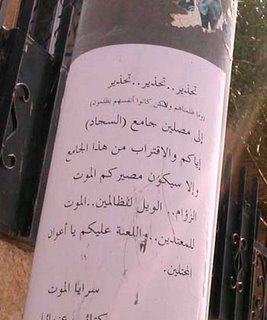 تحذير..تحذير..تحذير
(وما ظلمناهم ولاكن كانوا أنفسهم يظلمون)
إلى مصلين جامع (السجاد)
إياكم والاقتراب من هذا الجامع
وإلا سيكون مصيركم الموت
الزؤام.. الويل للظالمين..الموت
للمعتدين..واللعنة عليكم يا أعوان
المحتلين.
سرايا الموت